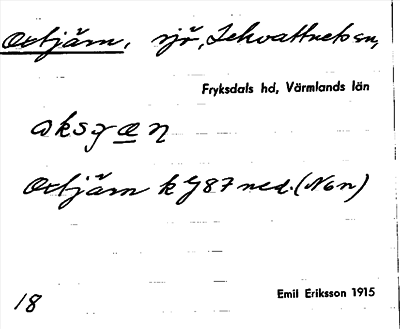 Oxtjärn, sjö, Lekvattnets sn,
Fryksdals hd, Värmlands län
Oxtjärn k G87 ned. (Non)
18
Emil Eriksson 1915